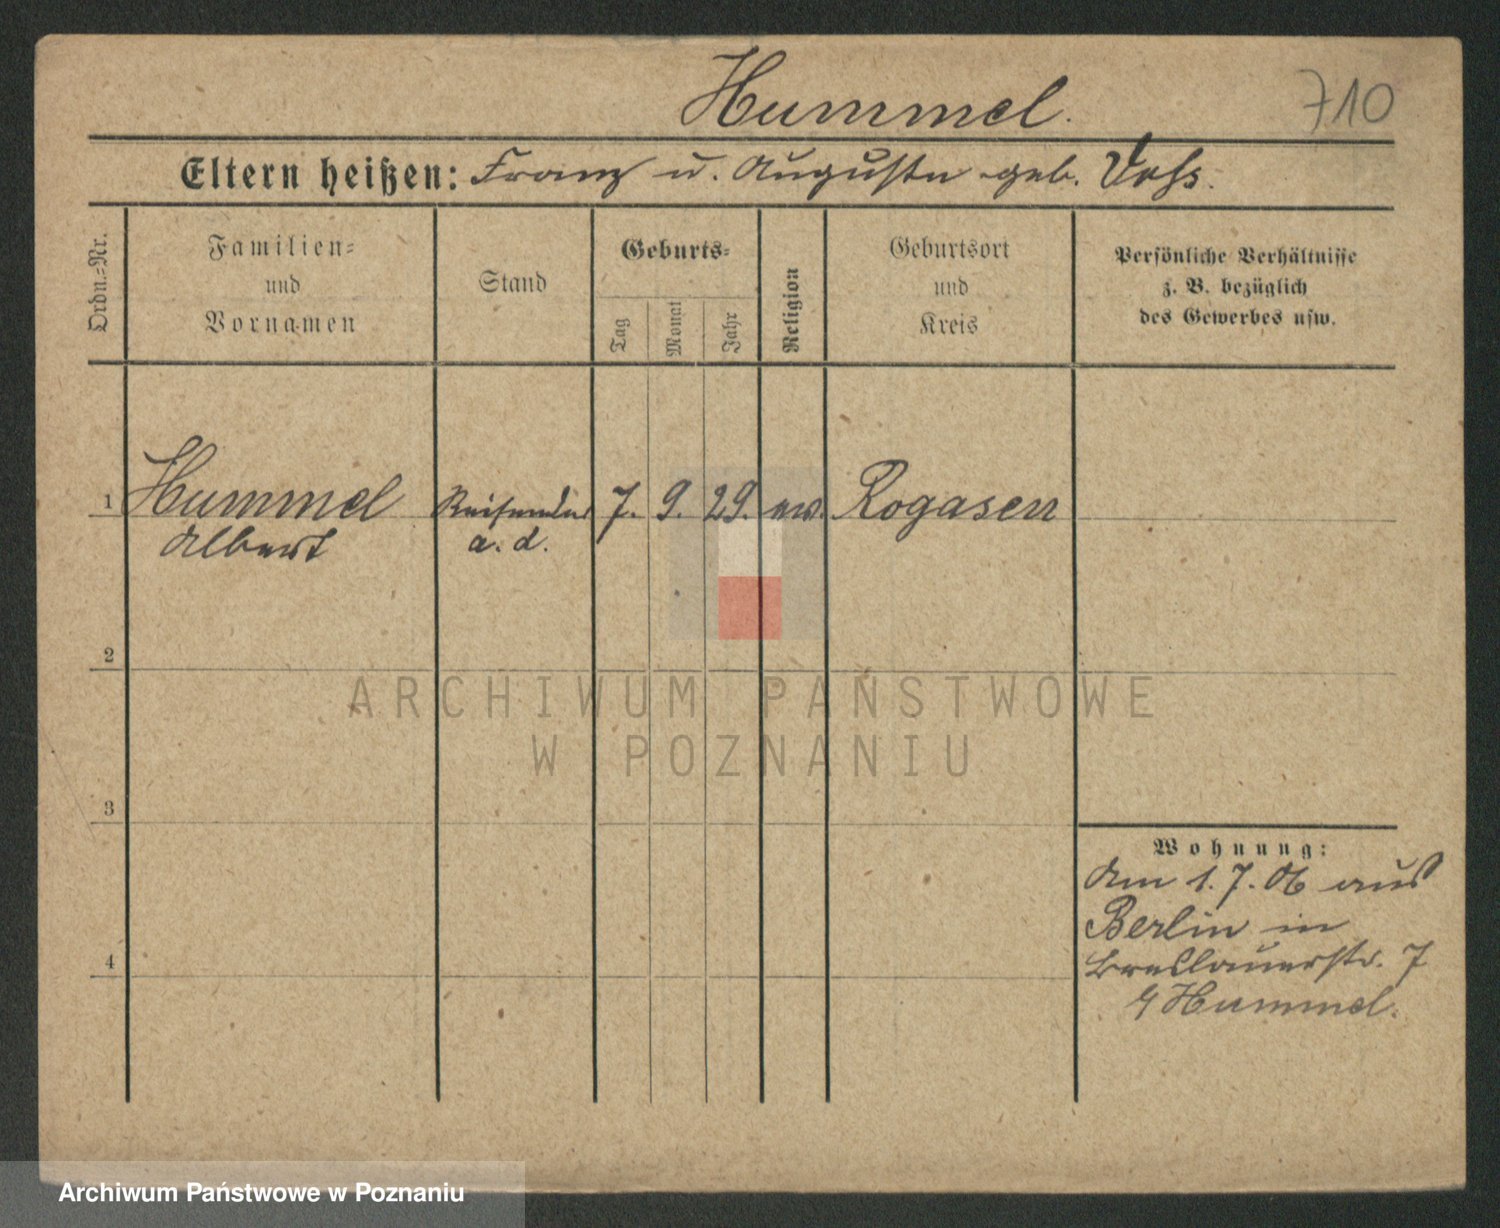 Hummel.
710
Eltern heißen: Franz u. Auguste geb. Voss.
Ordn.=Nr.
Familien=
und
Vornamen
Stand
Geburts=
Tag
Monat
Jahr
Religion
Geburtsort
und
Kreis
Persönliche Verhältnisse
z. B. bezüglich
des Gewerbes usw.
1 Hummel Reisender 7. 9. 29. ew. Rogasen
Albert a. d.
2
ARCHIWUM PAŃSTWOWE
W POZNANIU
3
Wohnung:
Am 1. 7. 06 aus
Berlin in
Breslauerstr. 7
Hummel.
4
Archiwum Państwowe w Poznaniu